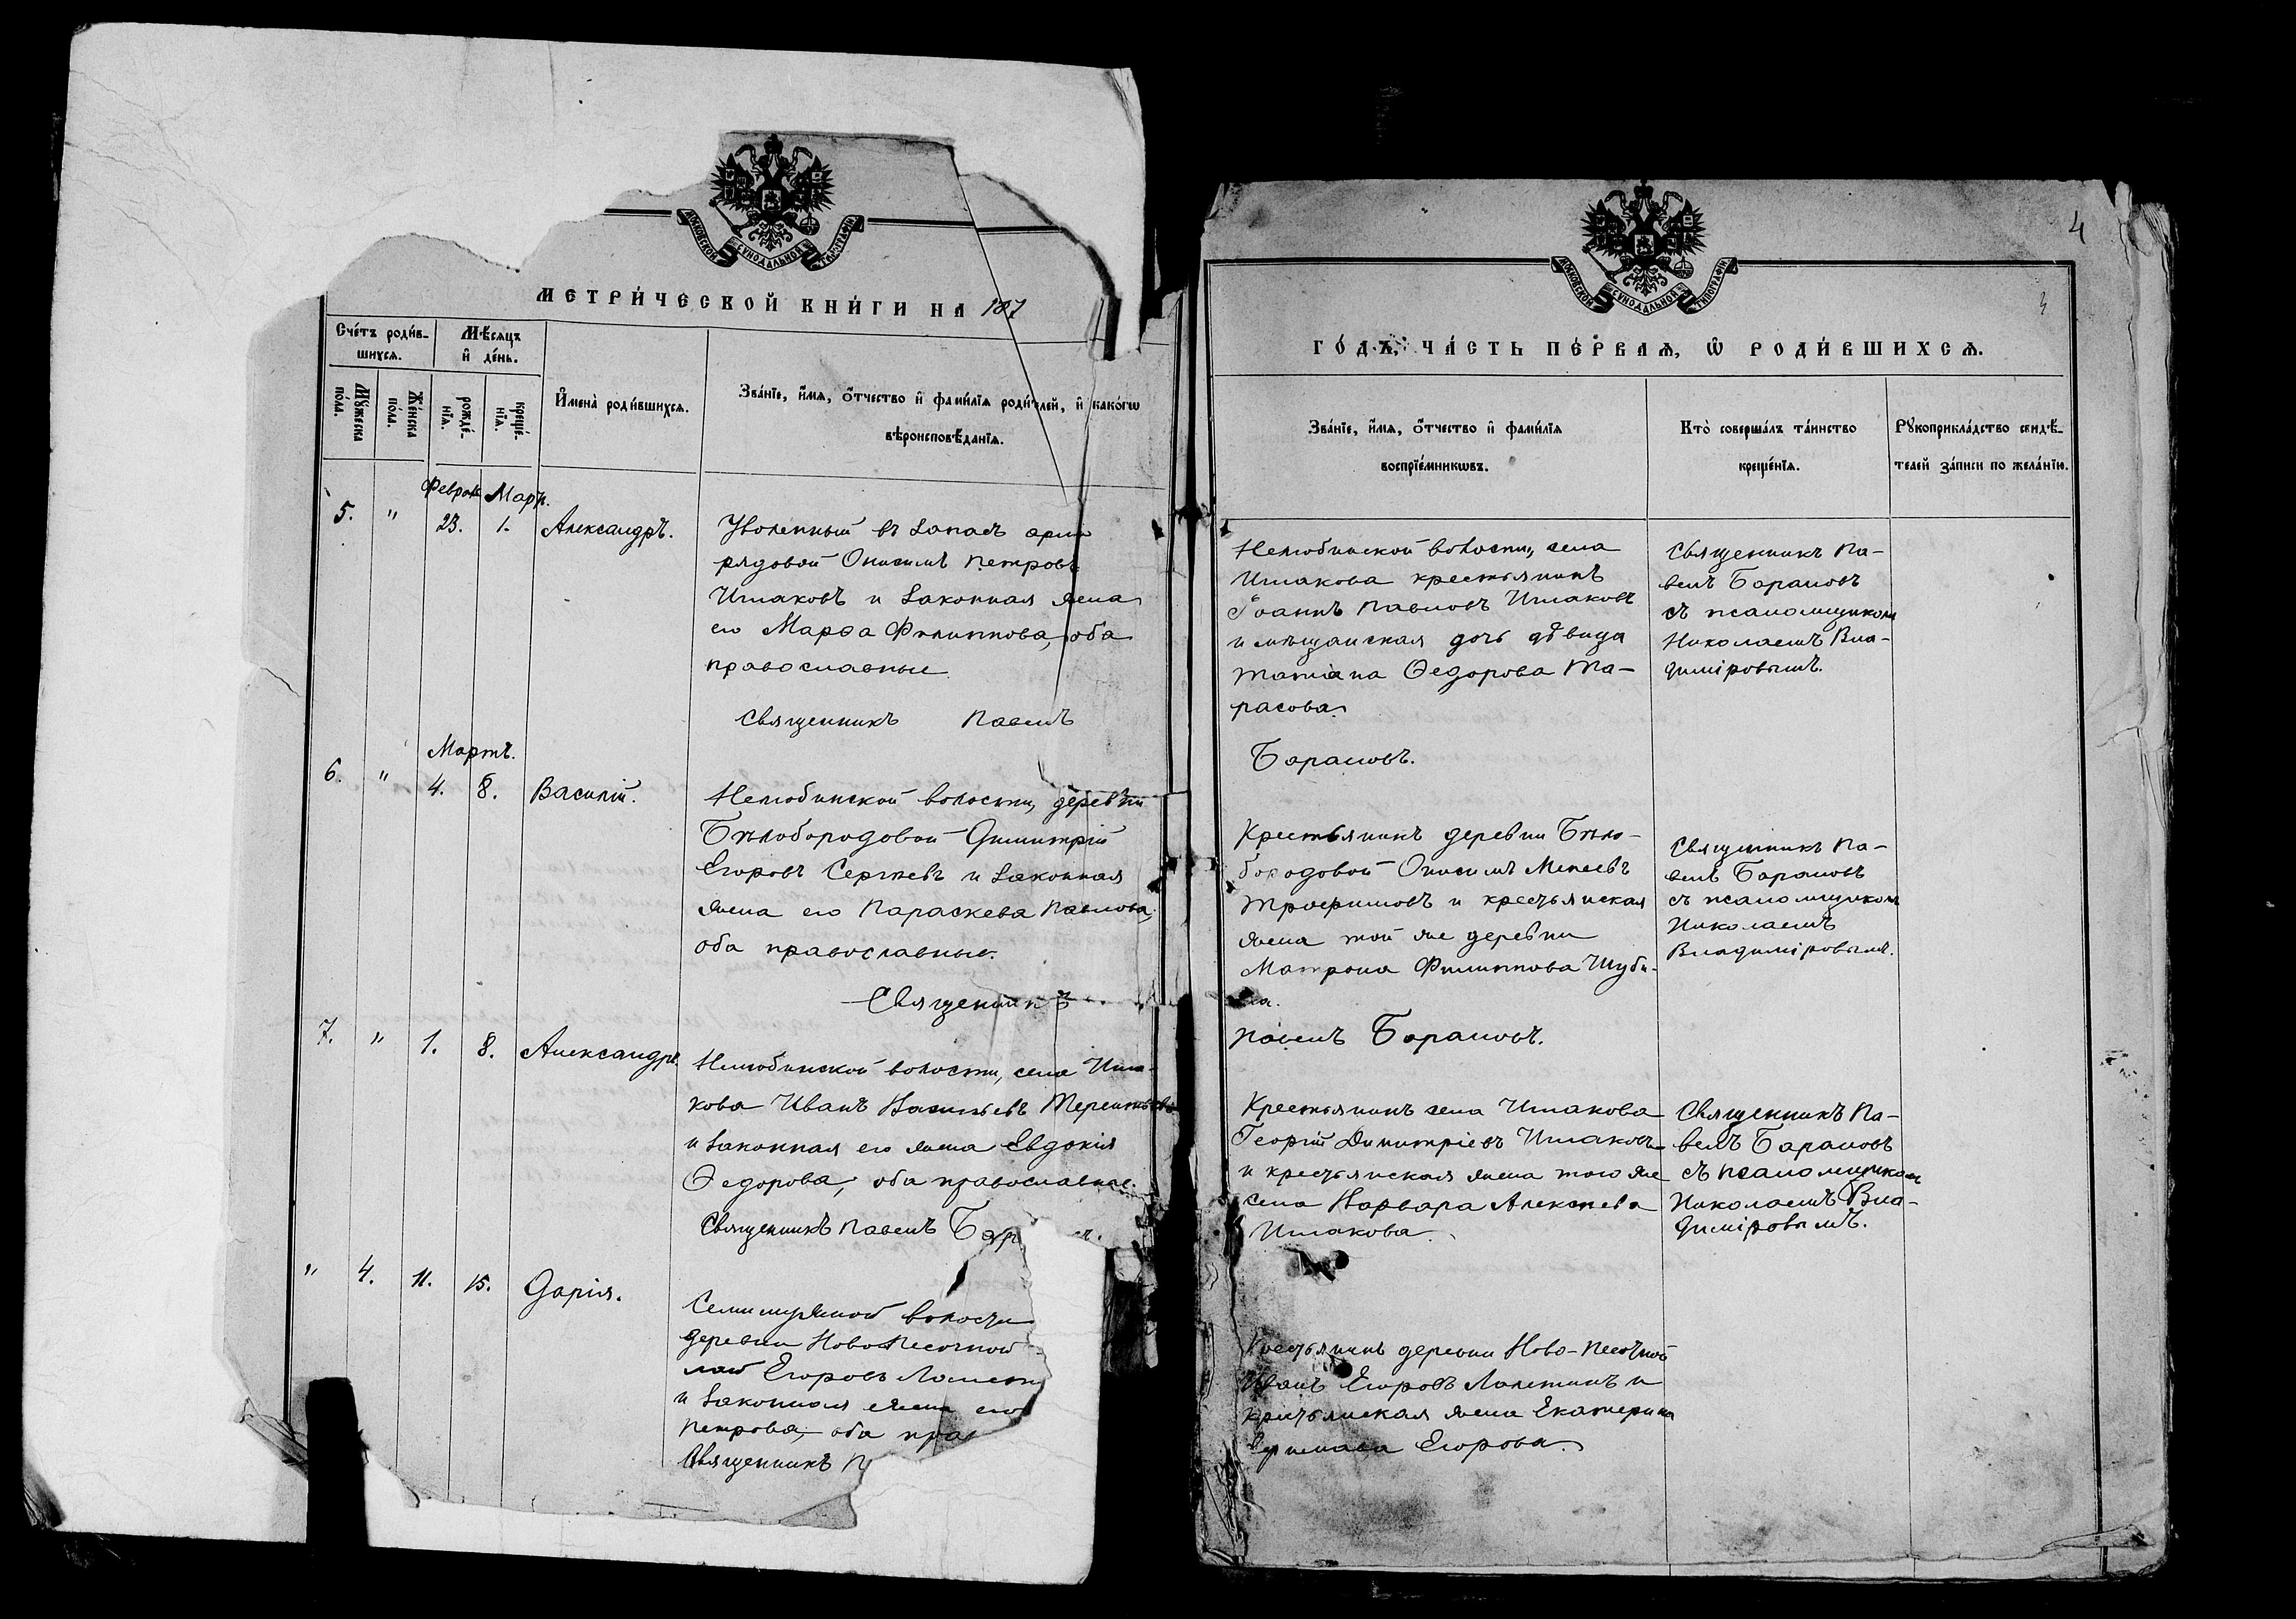 МОСКОВСКОЙ СѴНОДАЛЬНОЙ ТИПОГРАФІИ
МЕТРИ́ЧЕСКОЙ КНИ́ГИ НА 187
Сче́тъ роди́в-
шихсѧ.
Мѣ́сѧцъ
и҆ де́нь.
Мꙋ́жеска
по́ла.
Же́нска
по́ла.
рожде́-
нїѧ.
креще́-
нїѧ.
И҆мена̀ роди́вшихсѧ.
Зва́нїе, и҆́мѧ, ѻ҆́тчество и҆ фами́лїѧ роди́телей, и҆ како́гѡ
вѣроисповѣ́данїѧ.
Феврал. Март.
5. " 23. 1. Александръ.
Уволенный въ запасъ арміи
рядовой Онисимъ Петровъ
Ишаковъ и законная жена
его Марѳа Филиппова, оба
православные
Священникъ Павелъ
Мартъ.
6. " 4. 8. Василій.
Нелюбинской волости, деревни
Бѣлобородовой Димитрій
Егоровъ Сергѣевъ и законная
жена его Параскева Павлова,
оба православные.
Священникъ
7. " 1. 8. Александръ.
Нелюбинской волости, села Иша-
кова Иванъ Васильевъ Терентьевъ
и законная его жена Евдокія
Ѳедорова, оба православные.
Священникъ Павелъ
" 4. 11. 15. Дарія.
Семилужной волости
деревни НовоПесочной
Егоровъ
и законная жена его
Петрова, оба
Священникъ П
МОСКОВСКОЙ СѴНОДАЛЬНОЙ ТИПОГРАФІИ
4
3
ГО́ДЪ, ЧА́СТЬ ПЕ́РВАѦ, Ѡ҆ РОДИ́ВШИХСѦ.
Зва́нїе, и҆́мѧ, ѻ҆́тчество и҆ фами́лїѧ
воспрїе́мникѡвъ.
Кто̀ соверша́лъ та́инство
креще́нїѧ.
Рꙋкоприкла́дство свидѣ́-
телей за́писи по жела́нїю.
Нелюбинской волости, села
Ишакова крестьянинъ
Іоаннъ Павловъ Ишаковъ
и мѣщанская дочь дѣвица
Татіана Ѳедорова Та-
расова
Священникъ Па-
велъ Барановъ
съ псаломщикомъ
Николаемъ Вла-
диміровымъ.
Барановъ.
Крестьянинъ деревни Бѣло-
бородовой Онисимъ Мокеевъ
Трофимовъ и крестьянская
жена той же деревни
Матрона Филиппова Шуби-
на.
Священникъ Па-
велъ Барановъ
съ псаломщикомъ
Николаемъ
Владиміровымъ.
Павелъ Барановъ.
Крестьянинъ села Ишакова
Георгій Димитріевъ Ишаковъ
и крестьянская жена того же
села Варвара Алексѣева
Ишакова.
Священникъ Па-
велъ Барановъ
съ псаломщикомъ
Николаемъ Вла-
диміровымъ.
Крестьянинъ деревни Ново-Песочной
Иванъ Егоровъ Лапетинъ и
крестьянская жена Екатерина
Егорова.